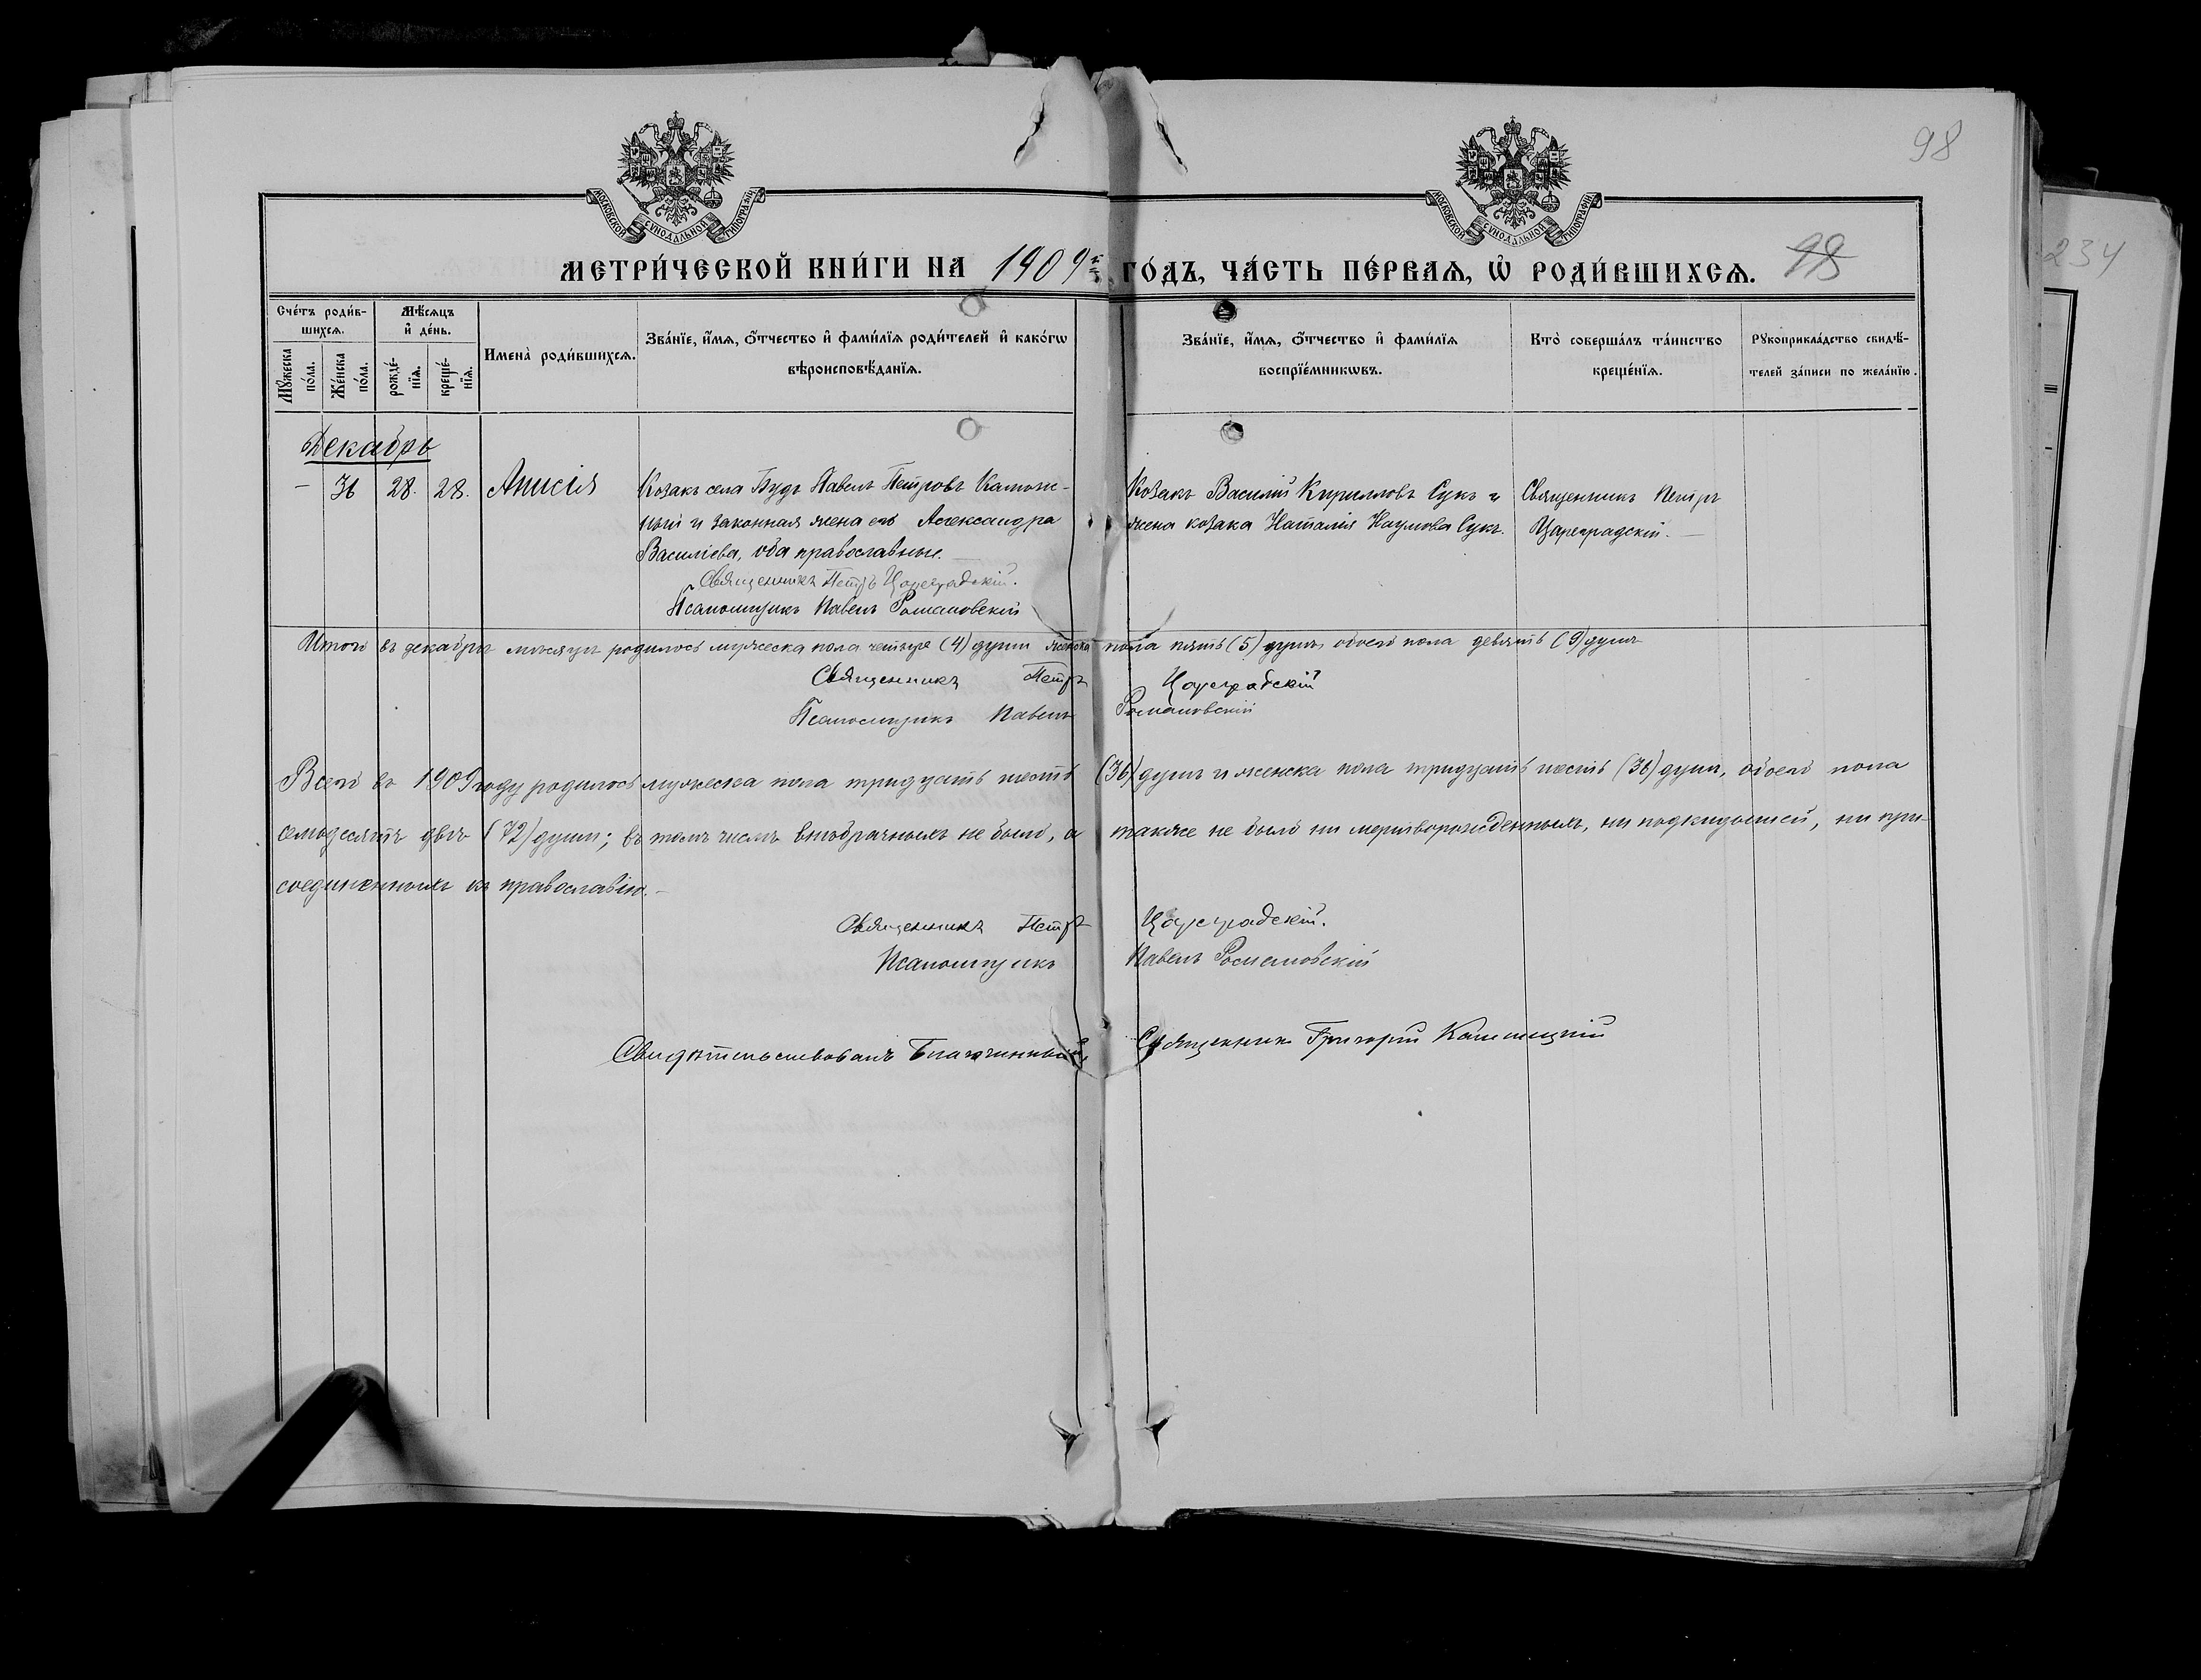 98
МОСКОВСКОЙ СѴНОДАЛЬНОЙ ТИПОГРАФІИ
МОСКОВСКОЙ СѴНОДАЛЬНОЙ ТИПОГРАФІИ
МЕТРИ́ЧЕСКОЙ КНИ́ГИ НА 1909й ГО́ДЪ, ЧА́СТЬ ПЕ́РВАѦ, Ѡ҆ РОДИ́ВШИХСѦ.
234
Сче́тъ роди́в-
шихсѧ.
Мꙋ́жеска
по́ла.
Же́нска
по́ла.
Мѣ́сѧцъ
и҆ де́нь.
рожде́-
нїѧ.
креще́-
нїѧ.
Имена̀ роди́вшихсѧ.
Зва́нїе, и҆́мѧ, ѻ҆́тчество и҆ фами́лїѧ роди́телей и҆ како́гѡ
вѣроисповѣ́данїѧ.
Зва́нїе, и҆́мѧ, ѻ҆́тчество и҆ фами́лїѧ
воспрїе́мникѡвъ.
Кто̀ соверша́лъ та́инство
креще́нїѧ.
Рꙋкоприкла́дство свидѣ́-
телей за́писи по жела́нїю.
Декабрь
– 36 28. 28. Анисія
Козакъ села Будъ Павелъ Петровъ
ный и законная жена его Александра
Василіева, оба православные.
Священникъ Петръ Цареградскій.
Псаломщикъ Павелъ Романовскій
Козакъ Василій Кирилловъ Сукъ и
жена козака Наталія Наумова Сукъ.
Священникъ Петръ
Цареградскій.
Итого въ декабрѣ мѣсяцѣ родилось мужеска пола четыре (4) души женска пола пять (5) душъ, обоего пола девять (9) душъ
Священникъ Петръ Цареградскій
Псаломщикъ Павелъ Романовскій
Всего въ 1909 году родилось мужеска пола тридцать шесть (36) душъ и женска пола тридцать шесть (36) душъ, обоего пола
семьдесятъ двѣ (72) души; въ томъ числѣ внѣбрачныхъ не было, а также не было ни мертворожденныхъ, ни подкидышей, ни при-
соединенныхъ къ православію.
Священникъ Петръ Цареградскій.
Псаломщикъ Павелъ Романовскій
Свидѣтельствовалъ Благочинный, Священникъ Григорій